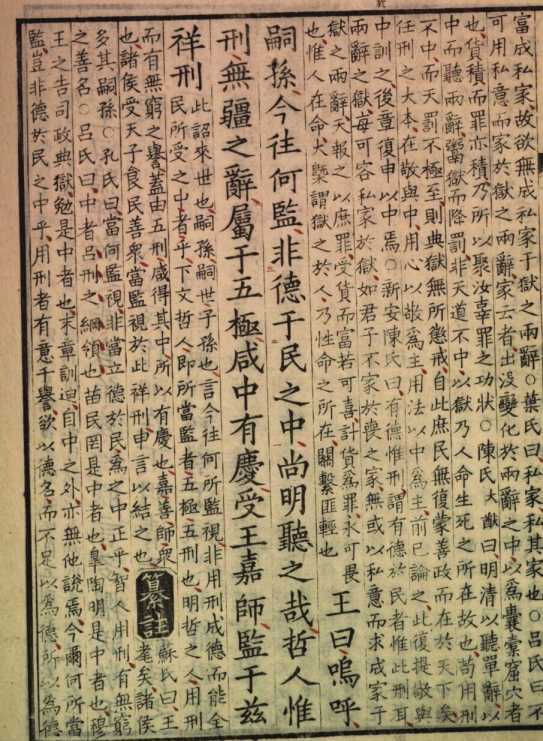 富成私家故欲無成私家于獄之兩辭○葉氏曰私家也○呂氏曰不
可用私意而家於獄之兩辭家云者出没變化於兩辭之中以為囊橐窟穴者
也貨積而罪亦積乃所以聚汝辜罪之功狀○陳氏大猷曰明清以聽單辭以
中而聽兩辭鬻獄而降罰非天道不中以獄乃人命生死之所在故也苟用刑
不中而天罰不極至則典獄無所懲戒自此庶民無復蒙善政而在於天下矣
任刑之大本在敬與中用心以敬為主用法以中為主前已論之此復提敬與
中訓之後章復申以中焉○新安陳氏曰有德惟刑謂有德於民者惟此刑耳
兩辭之獄每可容私家於獄如君子不家於喪之家無或以私意而求成家于
獄之兩辭天報之以庶罪受貨而富若可喜計貨為罪永可畏
也惟人在命大槩謂獄之於人乃性命之所在關繫匪輕也
王曰嗚呼
嗣孫今往何監非德于民之中尚明聽之哉哲人惟
刑無疆之辭屬于五極咸中有慶受王嘉師監于茲
祥刑
此詔來世也嗣孫嗣世子孫也言今往何所監視非用刑成德而能全
民所受之中者乎下文哲人即所當監者五極五刑也明哲之人用刑
而有無窮之譽蓋由五刑咸得其中所以有慶也嘉善師衆
也諸侯受天子良民善衆當監視於此祥刑申言以結之也
纂註
蘇氏曰王
耄矣諸侯
多其嗣孫○孔氏曰當何監視非當立德於民為之中正乎智人用刑有無窮
之善名○呂氏曰中者呂刑之綱領也苗民罔是中者也臯陶明是中者也穆
王之告司政典獄勉是中者也末章訓迪自中之外亦無他說焉今爾何所當
監豈非德於民之中乎用刑者有意于譽欲以德名而不足以為德所以為德